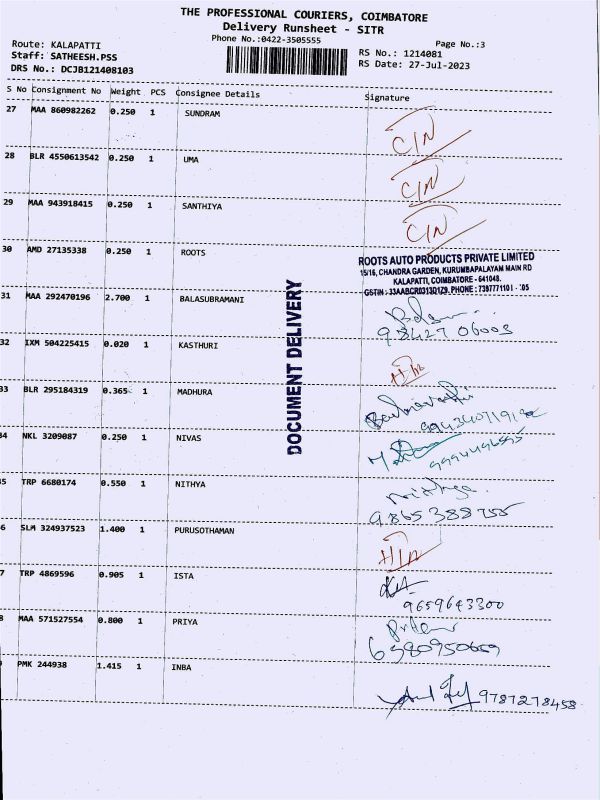 THE PROFESSIONAL COURIERS, COIMBATORE
Delivery Runsheet - SITR
Phone No.:0422-3505555
Page No.:3
Route: KALAPATTI
Staff: SATHEESH.PSS
DRS No.: DCJB121408103
RS No.: 1214081
RS Date: 27-Jul-2023
S No Consignment No Weight PCS Consignee Details Signature
27 MAA 860982262 0.250 1 SUNDRAM C/N
28 BLR 4550613542 0.250 1 UMA C/N
29 MAA 943918415 0.250 1 SANTHIYA C/N
30 AMD 27135338 0.250 1 ROOTS
ROOTS AUTO PRODUCTS PRIVATE LIMITED
15/16, CHANDRA GARDEN, KURUMBAPALAYAM MAIN RD
KALAPATTI, COIMBATORE - 641048.
DOCUMENT DELIVERY
31 MAA 292470196 2.700 1 BALASUBRAMANI
98427 06003
32 IXM 504225415 0.020 1 KASTHURI
33 BLR 295184319 0.365 1 MADHURA
34 NKL 3209087 0.250 1 NIVAS
35 TRP 6680174 0.550 1 NITHYA Nithya
6 SLM 324937523 1.400 1 PURUSOTHAMAN
7 TRP 4869596 0.905 1 ISTA
9659643300
8 MAA 571527554 0.800 1 PRIYA
6380950669
PMK 244938 1.415 1 INBA
9787278458